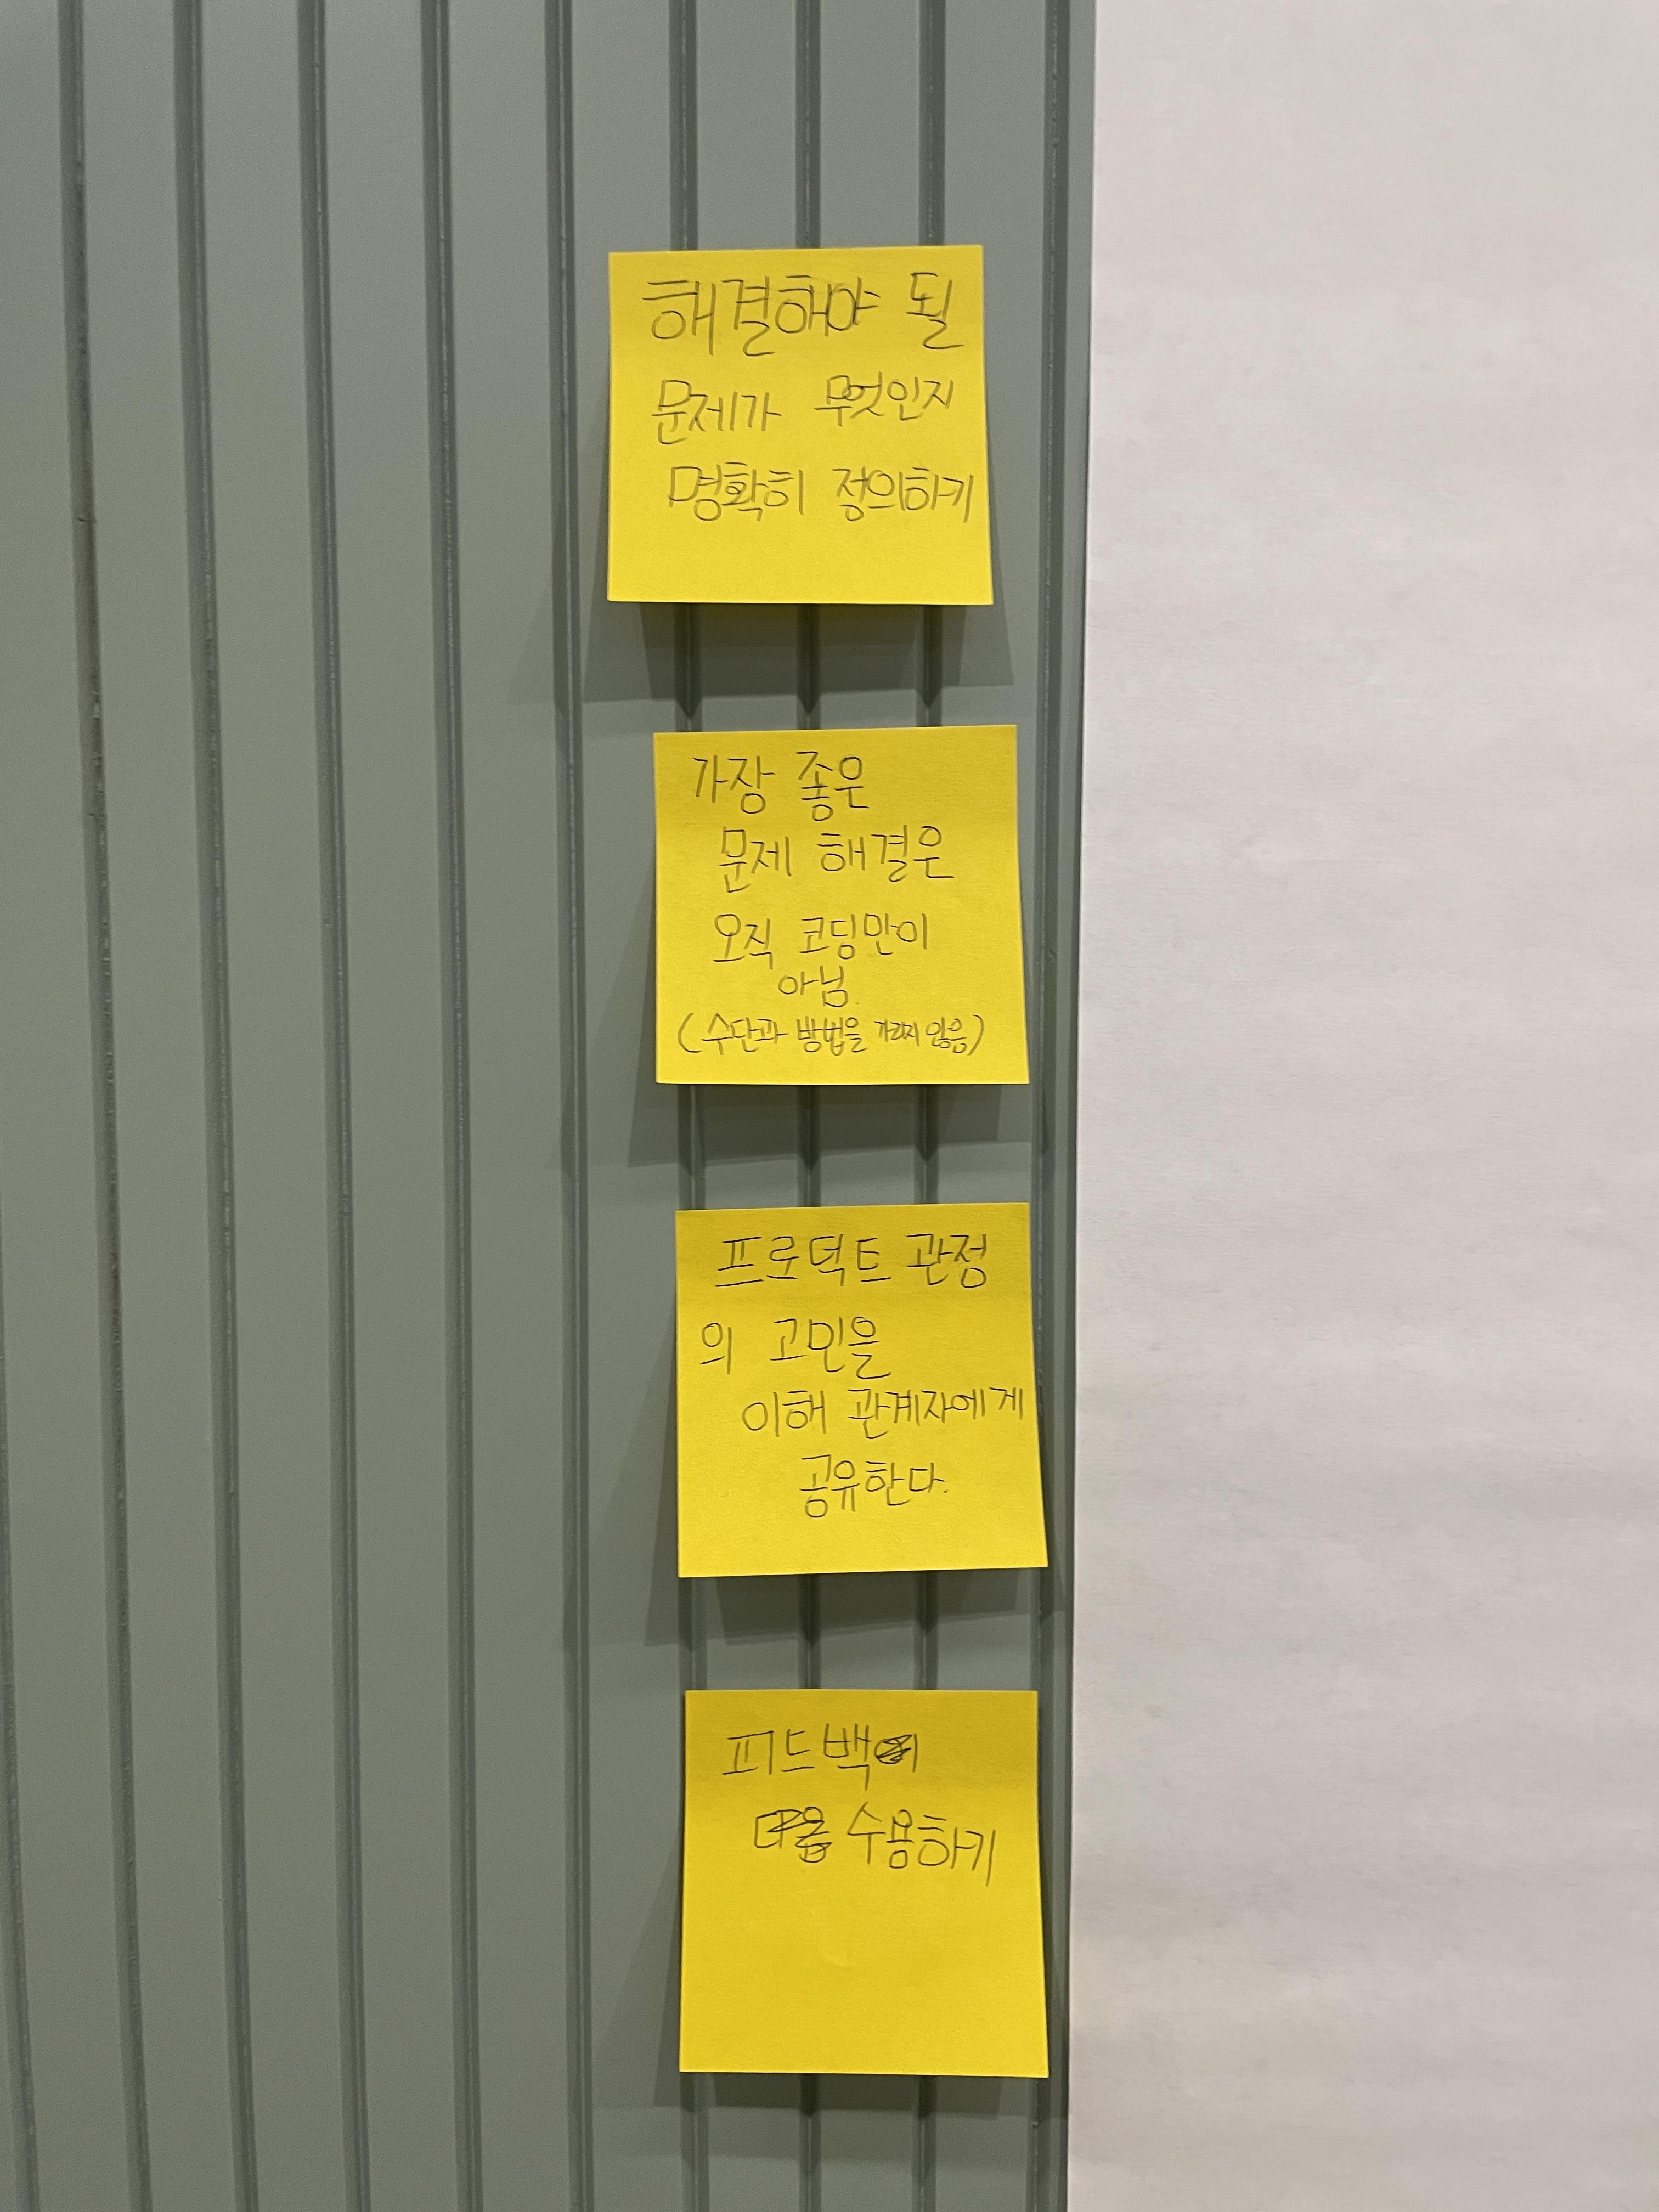 해결해야 될
문제가 무엇인지
명확히 정의하기
가장 좋은
문제 해결은
오직 코딩만이
아님.
(수단과 방법을 가리지 않음)
프로덕트 관정
의 고민을
이해 관계자에게
공유한다.
피드백
수용하기